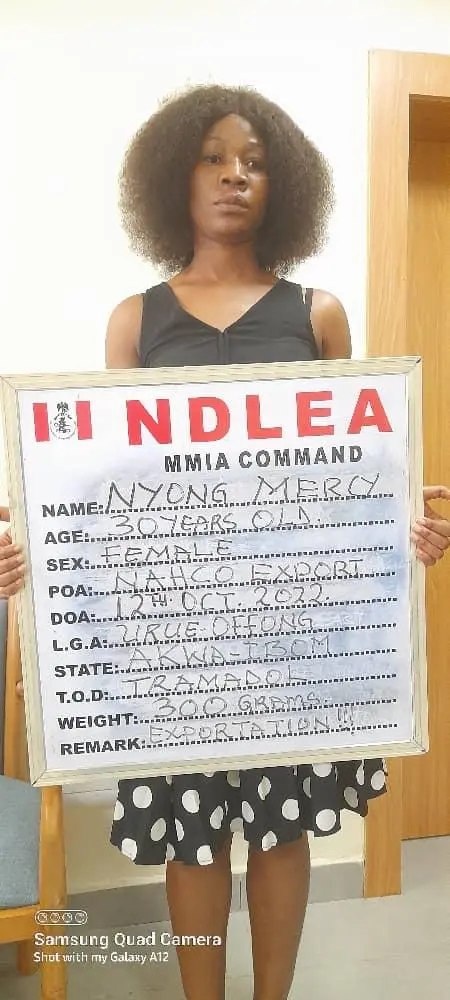 NDLEA
MMIA COMMAND
NAME: NYONG MERCY
AGE: 30 YEARS OLD.
SEX: FEMALE
POA: NAHCO EXPORT
DOA: 12TH. OCT. 2022.
L.G.A: URUE OFFONG
STATE: AKWA-IBOM
T.O.D: TRAMADOL
WEIGHT: 300 GRAMS.
REMARK: EXPORTATION!!!
Samsung Quad Camera
Shot with my Galaxy A12